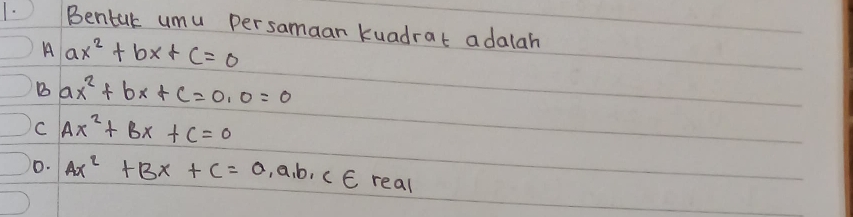 1. Bentuk umu persamaan kuadrat adalah
A ax² + bx + c = 0
B ax² + bx + c = 0, 0 = 0
C Ax² + Bx + c = 0
D. Ax² + Bx + c = 0, a, b, c ∈ real